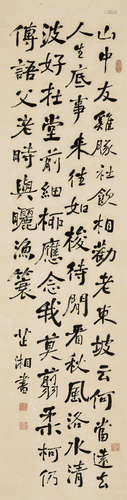 山中友雞豚社飲相勸老東坡云何當遠去
人生底事來往如梭待閒看秋風洛水清
波好在堂前細柳應念我莫翦柔柯仍
傳語父老時與曬漁蓑 湘書